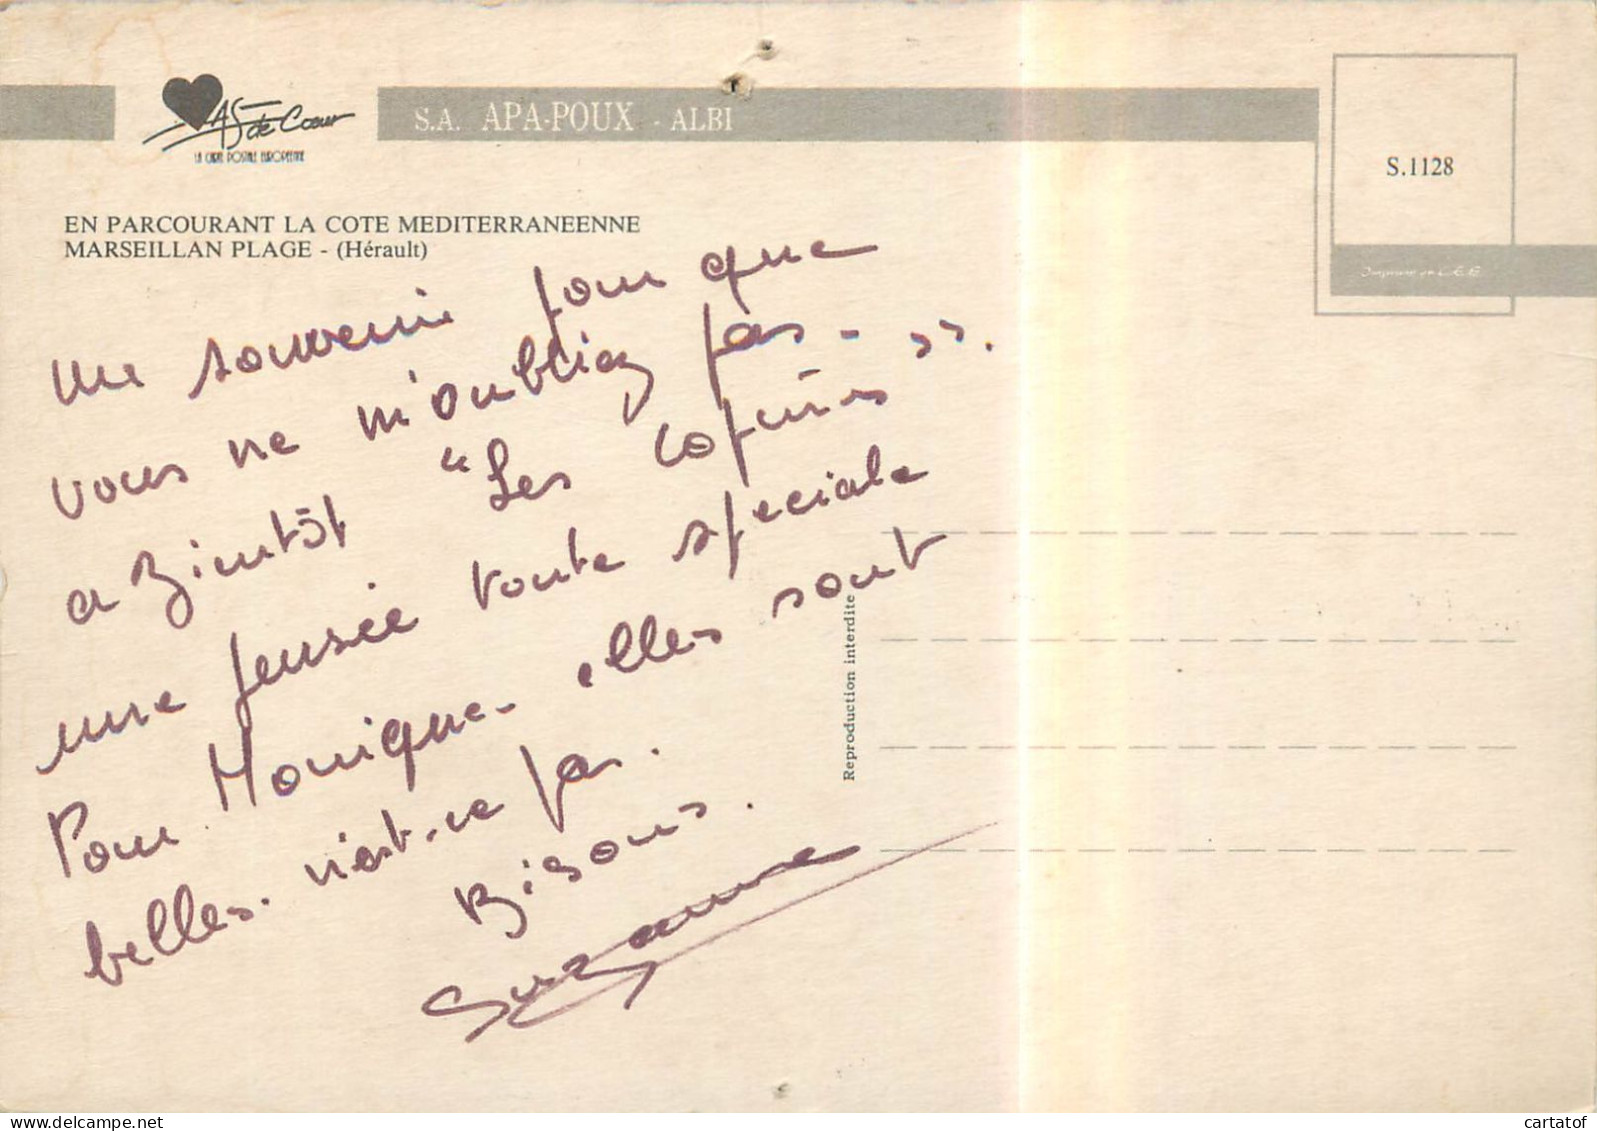 AS de Cœur
LA CARTE POSTALE EUROPEENNE
S.A. APA-POUX - ALBI
S.1128
EN PARCOURANT LA COTE MEDITERRANEENNE
MARSEILLAN PLAGE - (Hérault)
une souvenir pour que
vous ne m'oubliez pas -
a Bientôt "Les copines".
une pensée toute speciale
Pour Monique. elles sont
belles. n'est-ce pas.
Bisous.
Suzanne
Reproduction interdite
cartatof